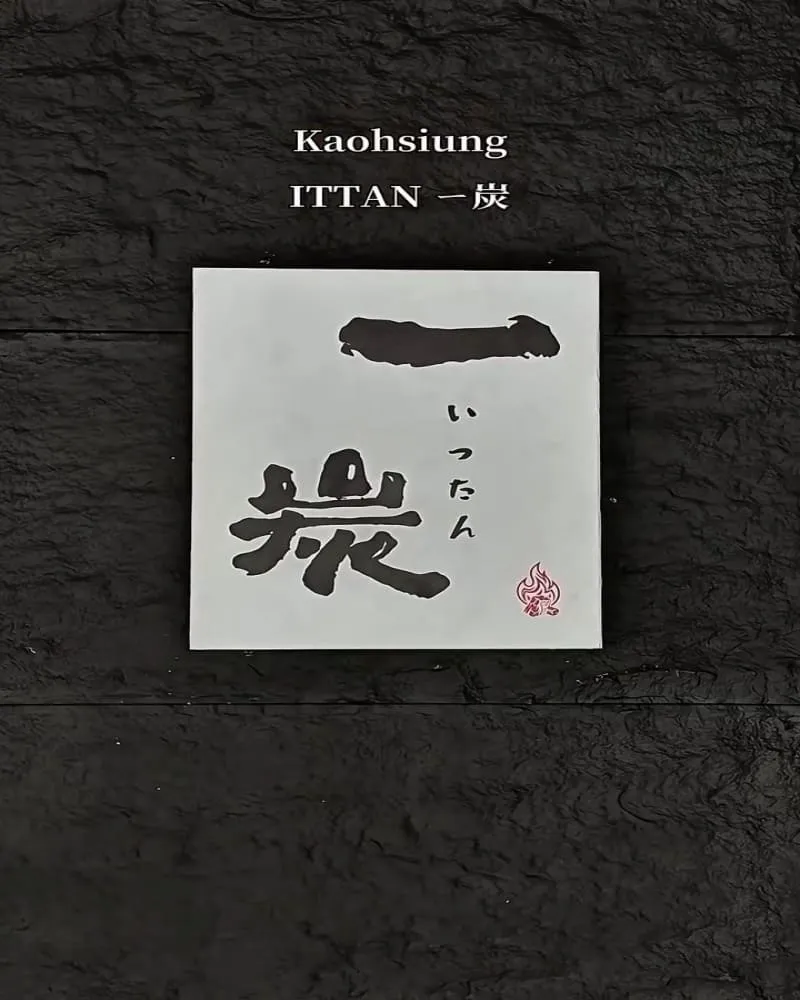 Kaohsiung
ITTAN 一炭
一炭
いつたん